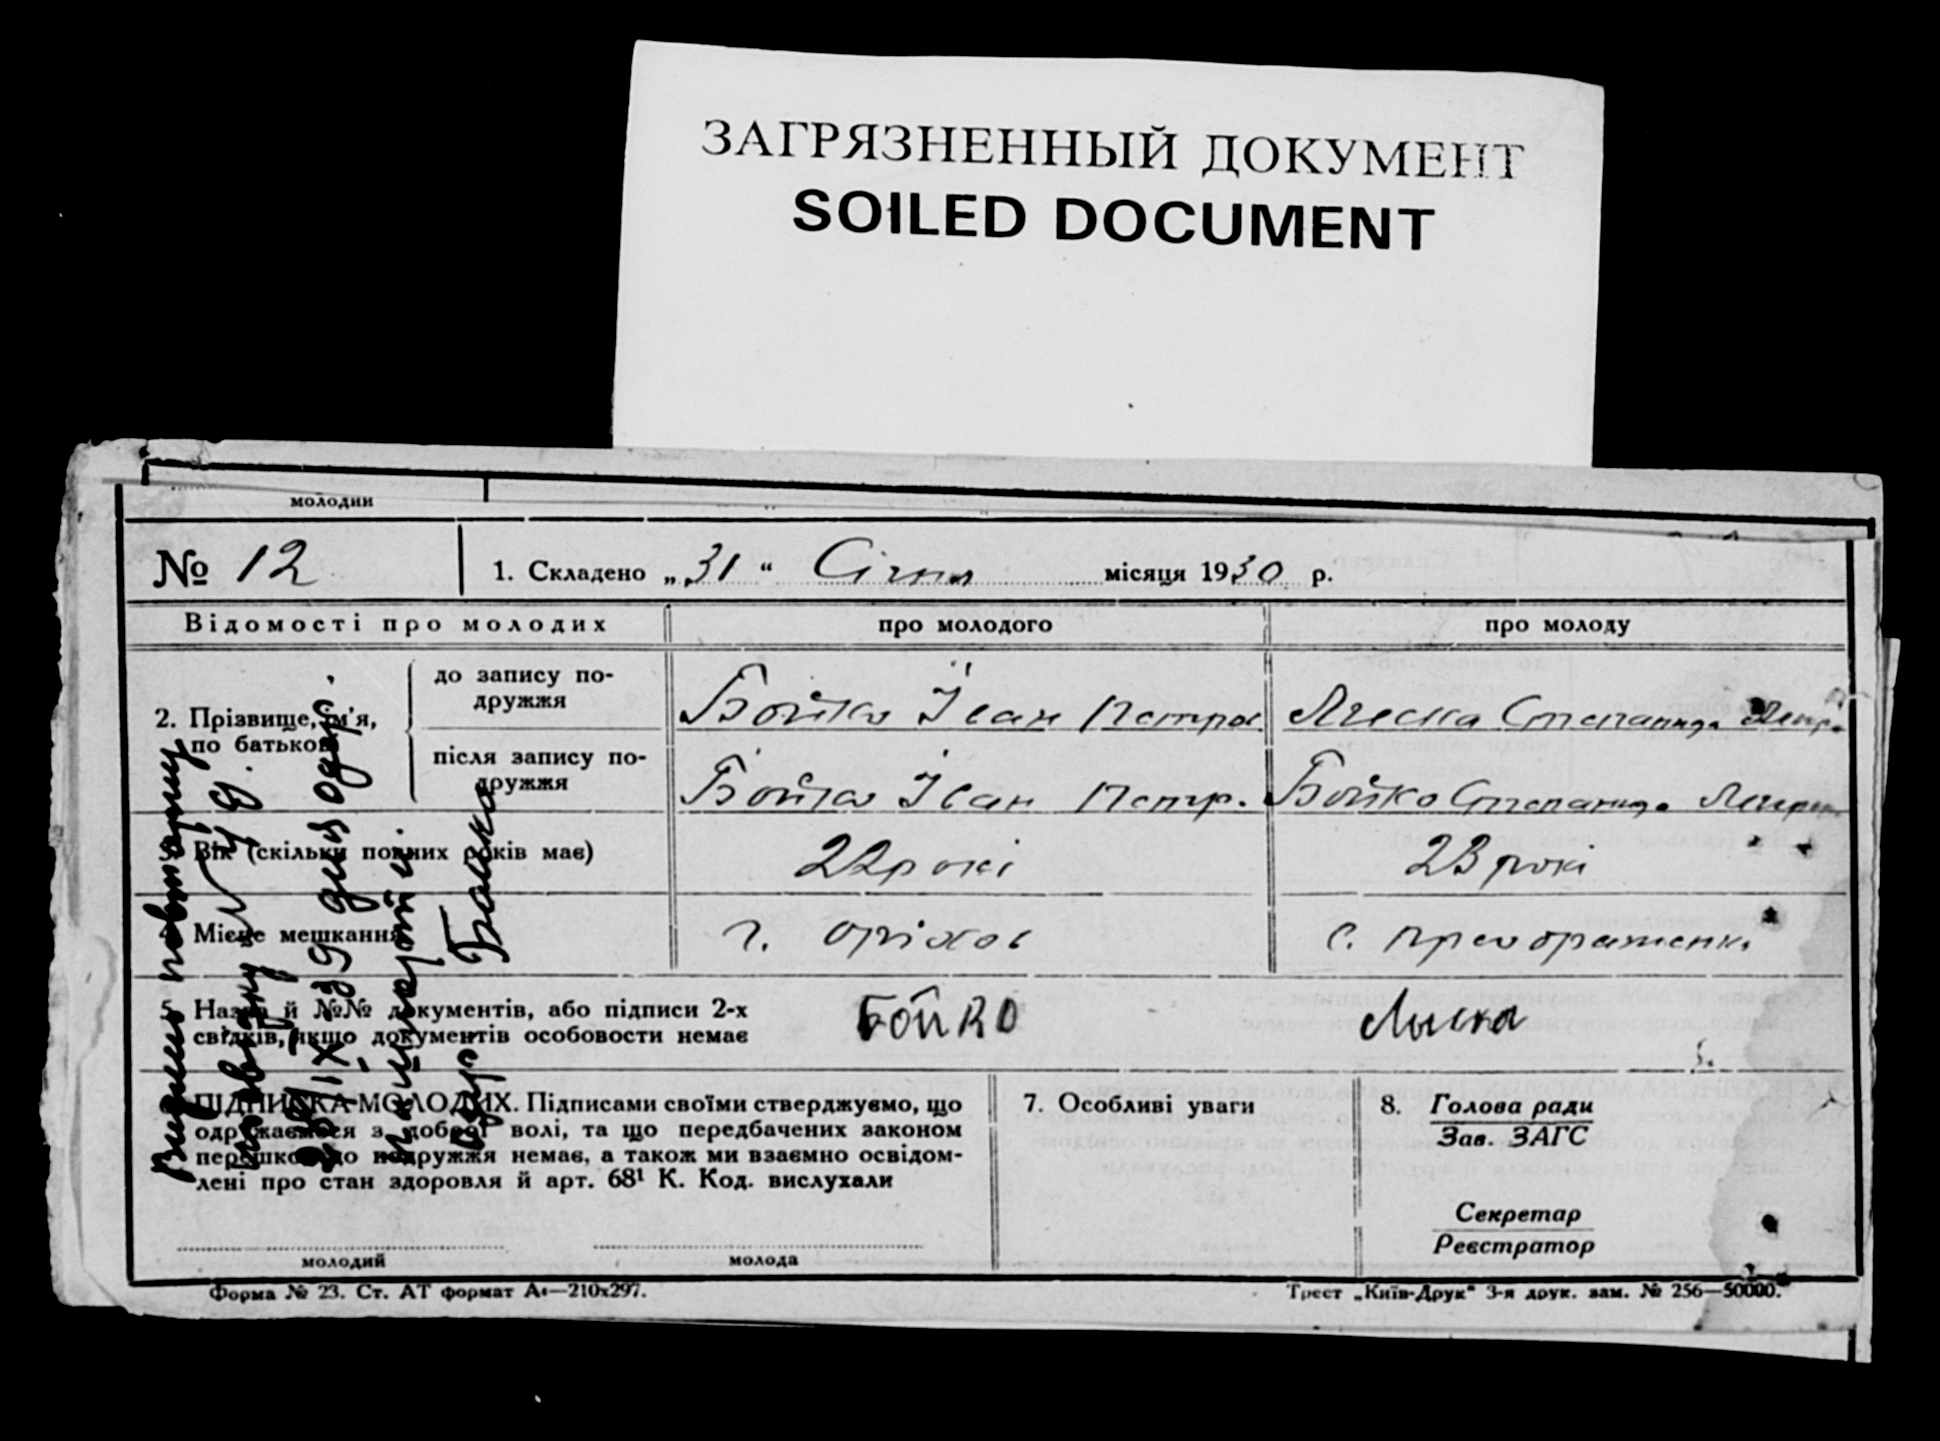 ЗАГРЯЗНЕННЫЙ ДОКУМЕНТ
SOILED DOCUMENT
молодий
№ 12
1. Складено „ 31 “ Січня місяця 1930 р.
Відомості про молодих
про молодого
про молоду
2. Прізвище, ім'я, по батькові
до запису по-
дружжя
Бойко Іван Петров
Степанида
після запису по-
дружжя
Бойко Іван Петр.
Бойко Степанида
3. Вік (скільки повних років має)
22 рокі
23 рокі
4. Місце мешкання
г. Оріхов
с. Преображенк.
5. Назва й №№ документів, або підписи 2-х
свідків, якщо документів особовости немає
Бойко
Лыска
ПІДПИСКА МОЛОДИХ. Підписами своїми стверджуємо, що
одружаємося з доброї волі, та що передбачених законом
перешкод до подружжя немає, а також ми взаємно освідом-
лені про стан здоровля й арт. 68¹ К. Код. вислухали
молодий
молода
7. Особливі уваги
8. Голова ради
Зав. ЗАГС
Секретар
Реєстратор
Форма № 23. Ст. АТ формат А4—210x297.
Трест „Київ-Друк" 3-я друк. зам. № 256—50000.
Видано повторну
IX 39 для одер.